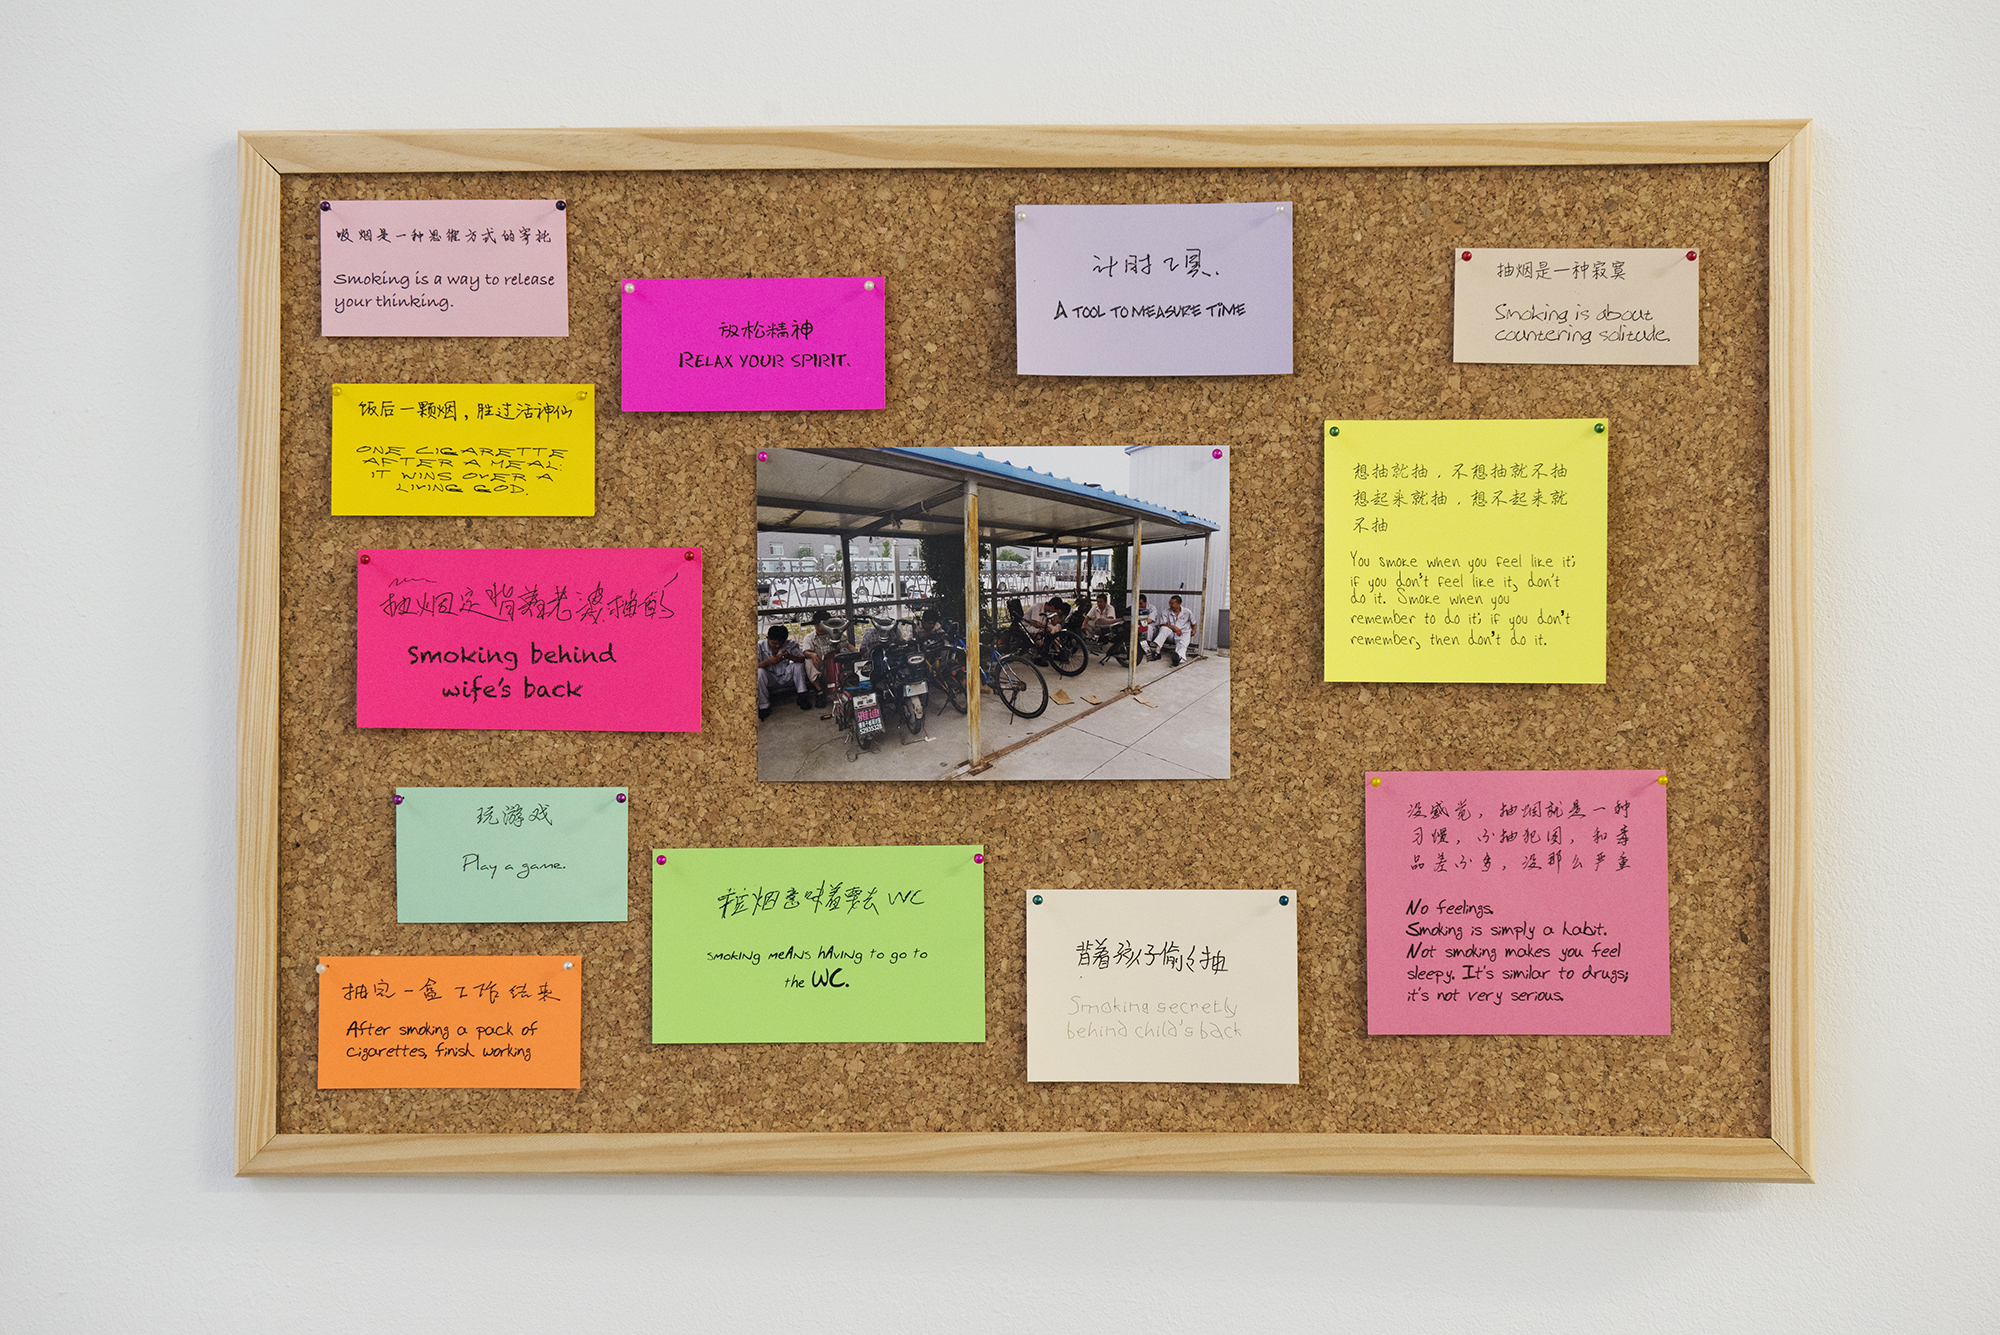 吸烟是一种思维方式的寄托
Smoking is a way to release
your thinking.
放松精神
RELAX YOUR SPIRIT.
计时工具.
A TOOL TO MEASURE TIME
抽烟是一种寂寞
Smoking is about
countering solitude.
饭后一颗烟，胜过活神仙
ONE CIGARETTE
AFTER A MEAL:
IT WINS OVER A
LIVING GOD.
想抽就抽．不想抽就不抽
想起来就抽．想不起来就
不抽
You smoke when you feel like it;
if you don't feel like it, don't
do it. Smoke when you
remember to do it; if you don't
remember, then don't do it.
抽烟是背着老婆抽的
Smoking behind
wife's back
雅迪
玩游戏
Play a game.
抽烟意味着要去 WC
SMOKING MEANS HAVING to go to
the WC.
背着孩子偷偷抽
Smoking secretly
behind child's back
没感觉，抽烟就是一种
习惯，不抽犯困，和毒
品差不多，没那么严重
No feelings.
Smoking is simply a habit.
Not smoking makes you feel
sleepy. It's similar to drugs;
it's not very serious.
抽完一盒工作结束
After smoking a pack of
cigarettes, finish working